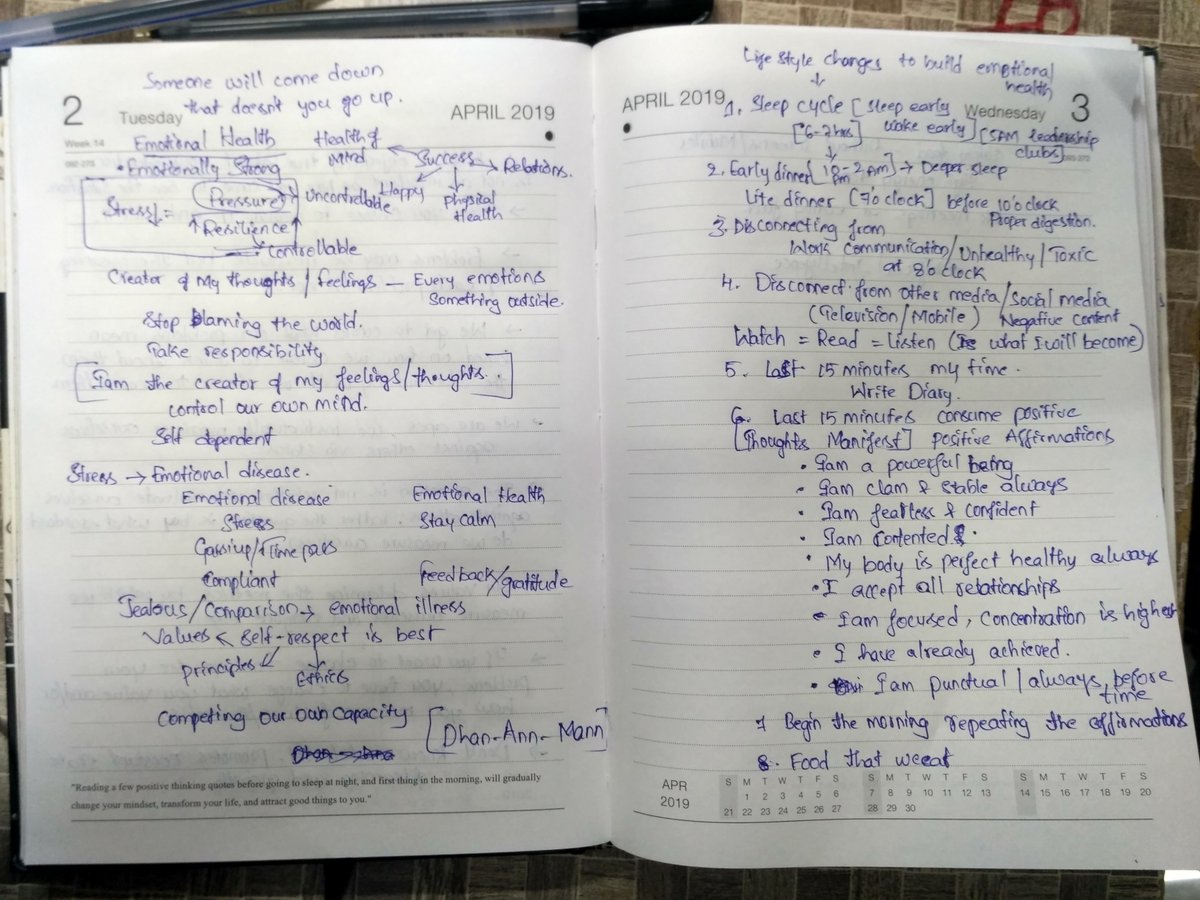 Someone will come down
that doesn't you go up.
2
Tuesday
APRIL 2019
Week 14
092-273
Emotional Health
Health of
Mind
Success
Relations.
• Emotionally Strong
Happy
Physical
Health
Stress↓ =
Pressure
Uncontrollable
Resilience
Controllable
Creator of My thoughts / feelings — Every emotions
Something outside.
Stop blaming the world.
Take responsibility
[I am the creator of my feelings/thoughts.]
control our own mind.
Self dependent
Stress → Emotional disease.
Emotional disease
Emotional Health
Stress
Stay calm
Gassiup/Time pass
Compliant
Feedback/gratitude
Jealous/Comparison → emotional illness
Values ← Self-respect is best
Principles
Ethics
Competing our own capacity
[Dhan-Ann-Mann]
"Reading a few positive thinking quotes before going to sleep at night, and first thing in the morning, will gradually
change your mindset, transform your life, and attract good things to you."
Life style changes to build emotional
health
APRIL 2019
Wednesday
3
1. Sleep cycle [Sleep early
Wake early]
[6-7hrs]
[5AM leadership
clubs]
2. Early dinner [10 pm - 2 AM] → Deeper sleep
Lite dinner [7'o clock] before 10'o clock
Proper digestion.
3. Disconnecting from
Work communication/Unhealthy/Toxic
at 8'o clock
4. Disconnect from other media/Social media
(Television/Mobile) Negative content
Watch = Read = Listen (Is what I will become)
5. Last 15 minutes my time.
Write Diary.
6. Last 15 minutes consume positive
[Thoughts Maniferst] positive Affirmations
• I am a powerful being
• I am clam & stable always
• I am fearless & confident
• I am contented
• My body is perfect healthy always
• I accept all relationships
• I am focused, concentration is highest
• I have already achieved.
• I am punctual/always, before
time
7 Begin the morning repeating the affirmations
8. Food that weeat
APR
2019
S M T W T F S
1 2 3 4 5 6
21 22 23 24 25 26 27
S M T W T F S
7 8 9 10 11 12 13
28 29 30
S M T W T F S
14 15 16 17 18 19 20